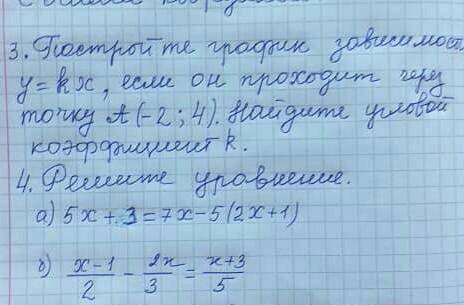 3. Постройте график зависимост
y = kx, если он проходит через
точку A(-2; 4). Найдите угловой
коэффициент k.
4. Решите уравнение.
а) 5x + 3 = 7x - 5(2x+1)
б) \frac{x-1}{2} - \frac{2x}{3} = \frac{x+3}{5}